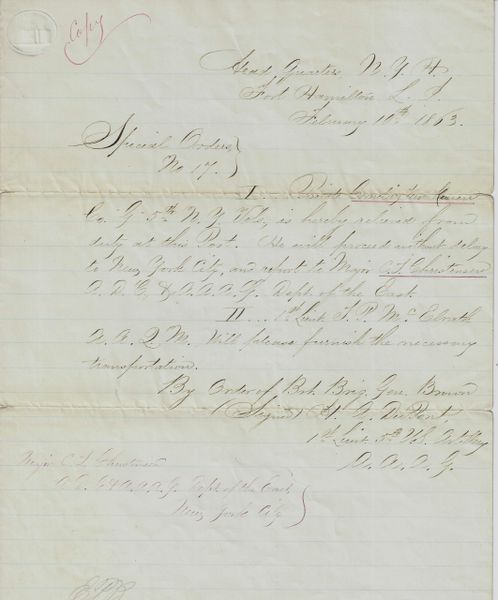 Copy
Head Quarters, N. Y. H.
Fort Hamilton L. I.
February 10th 1863.
Special Orders
No 17.
I. Private
Co. G. 5th N. Y. Vols, is hereby relieved from
duty at this Post. He will proceed without delay
to New York City, and report to Major C. T. Christensen
A. D. C. & A. A. A. G. Dept. of the East.
II ... 1st Lieut. T. P. McElrath
A. A. Q. M. Will please furnish the necessary
transportation.
By Order of Bvt. Brig. Gen. Brown
(Signed) H. A.
1st Lieut. 5th U.S. Artillery
A. A. A. G.
Major C. T. Christensen
A. D. C. & A. A. A. G. Dept of the East,
New York City